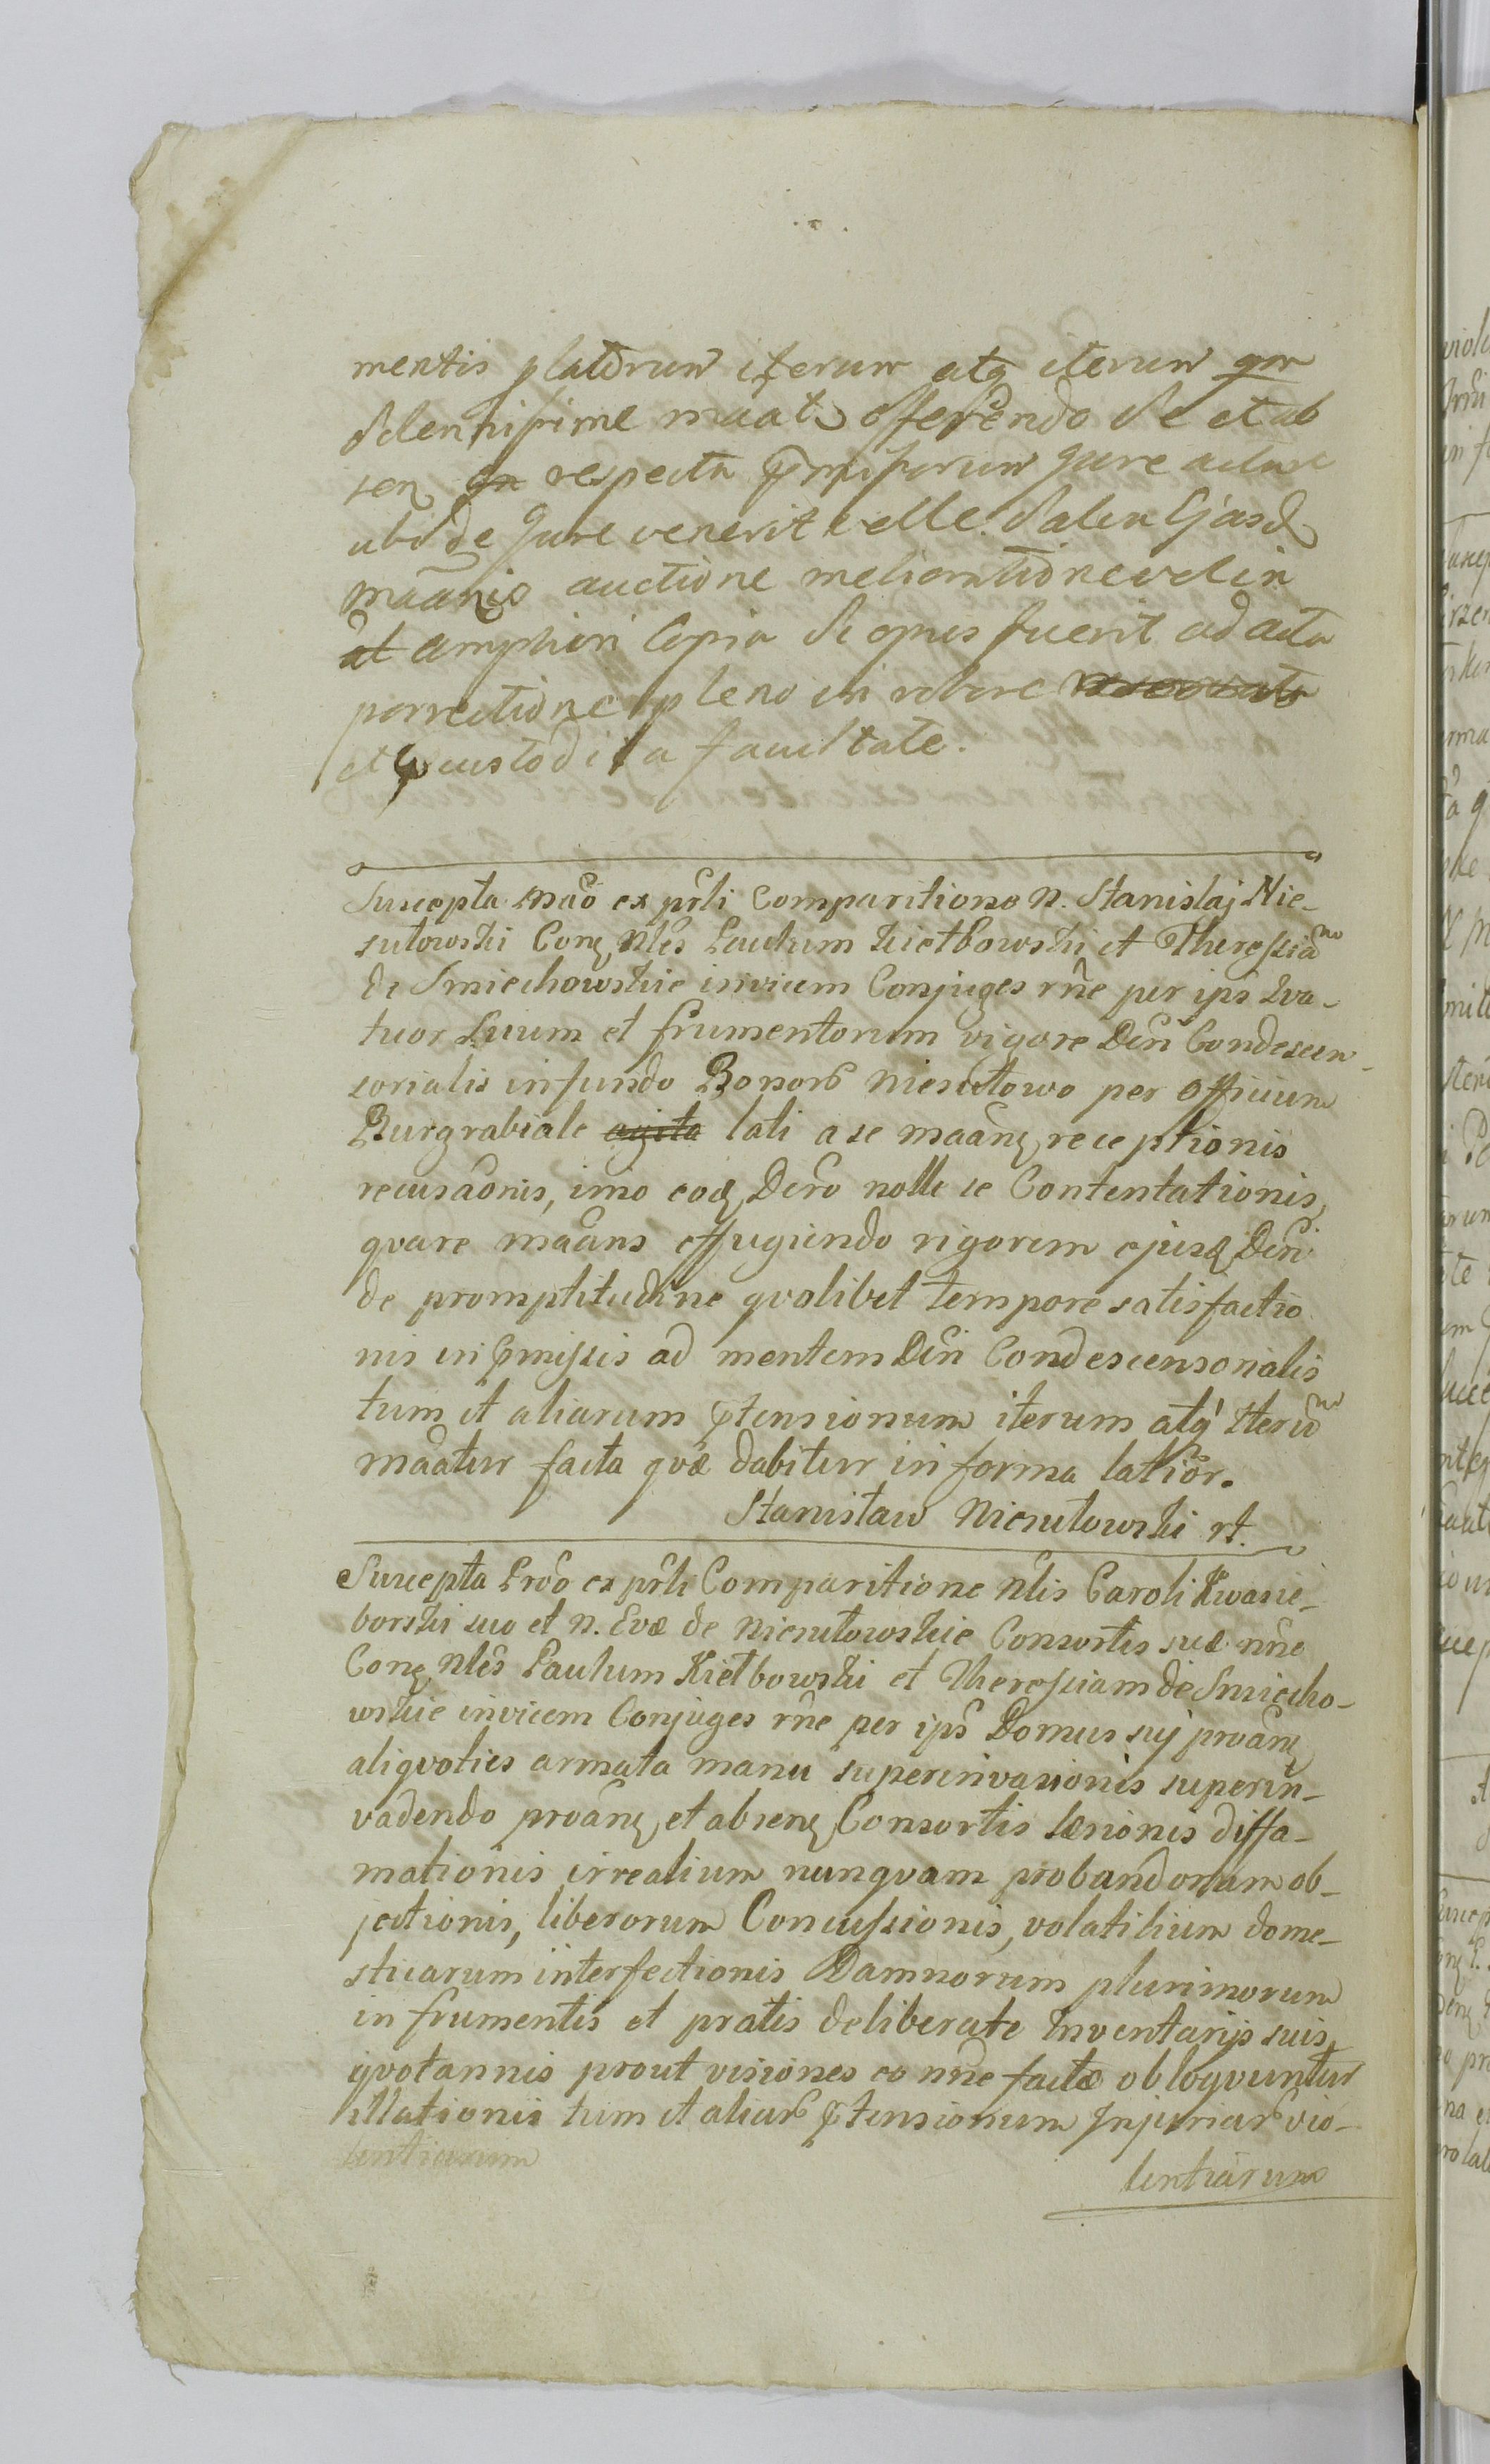 mentis platorum iterum atq iterum qm
Solennissime maat offerendo Se et ab
sen respectu pmissorum Jure actur
ubi de Jure venerit velle. Salva Ejasd
maanis auctione melioratione vel in
ampliori Copia Si opus fuerit ad acta
porrectione pleno in robore reservata
et custodita facultate.
Suscepta Mão ex prli Comparitione N. Stanislaj Nie-
sułowski Conq Nles Paulum Kiełbowski et Theressiam
de Smiechowskie invicem Conjuges rñe per ips Qva-
tuor Suum et frumentorum vigore Dcri Condescen-
sorialis in fundo Bonorб Niesułowo per Officium
Burgrabiale agita lati a se maanq receptionis
recusaonis, imo eoq Dcro nolle se Contentationis,
qvare maans effugiendo rigorem ejusd Dcri
de promptitudine qvolibet tempore satisfactio
nis in pmissis ad mentem Dcri Condescensorialis
tum et aliarum ptensionum iterum atq iterum
maatur facta qvæ dabitur in forma latior.
Stanisław Niesułowski rt.
Suscepta Prõo ex prli Comparitione Nlis Caroli Kwasie-
borski suo et N. Evæ de Niesułowskie Consortis suæ nñe
Conq Nles Paulum Kiełbowski et Theressiam de Smiecho-
wskie invicem Conjuges rñe per ips Domus suj proanq
aliqvoties armata manu superinvasionis superin-
vadendo proanq et absenq Consortis læsionis diffa-
mationis irrealium nunqvam probandorum ob-
jectionis, liberorum Concussionis, volatilium dome-
sticarum interfectionis Damnorum plurimorum
in frumentis et pratis deliberate Inventarijs suis
qvotannis prout visiones eo nñe factæ obloqvuntur
illationis tum et aliarб ptensionum Injuriarб vio-
lentiarum
lentiarum